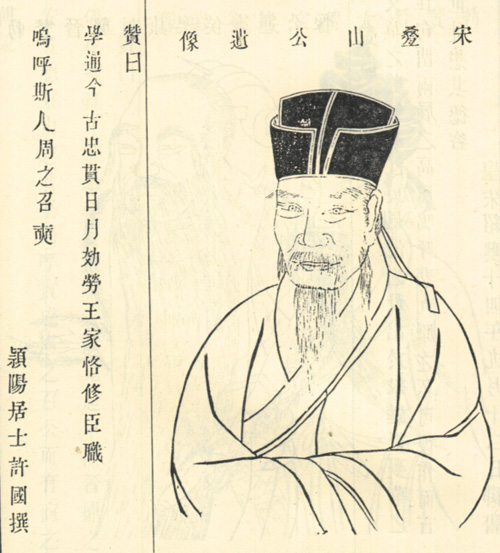 宋叠山公遺像
贊曰
學通今古忠貫日月効勞王家恪修臣職
嗚呼斯人周之召奭
穎陽居士許國撰